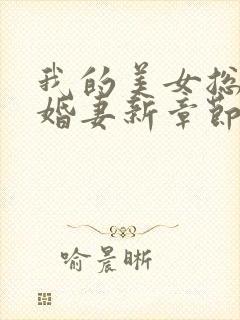 我的美女总
婚妻新章节
喻晨晰